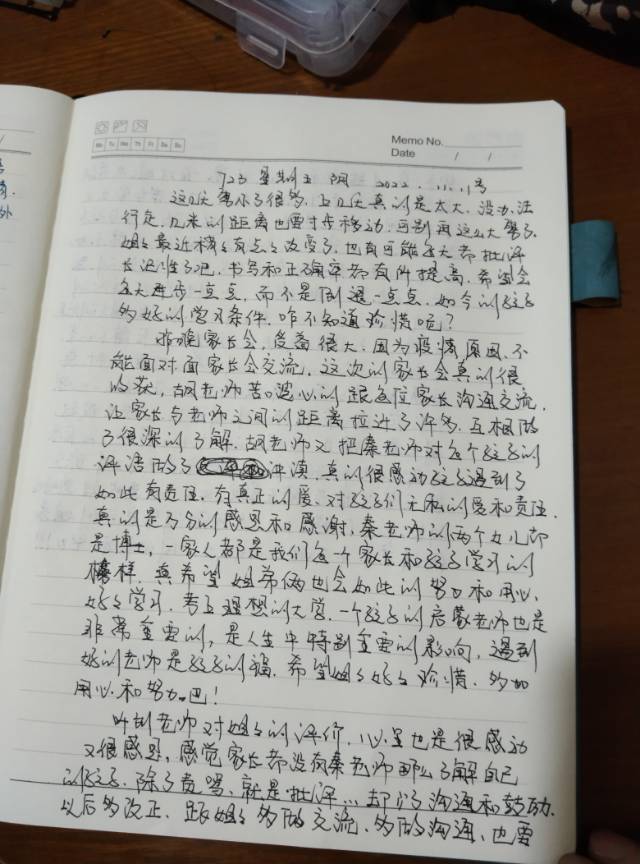 Mo Tu We Th Fr Sa Su
Memo No.
Date / /
723 星期五 阴 2022.11.11号
这几天雾小了很多,上几天真的是太大,没办法
行走,几米的距离也要寸步移动,可别再这么大雾了.
姐姐最近棒棒有点点改变了,也有可能每天都批评
长记性了吧,书写和正确率都有所提高,希望会
每天进步一点点,而不是倒退一点点,如今的孩子
多好的学习条件,咋不知道珍惜呢?
昨晚家长会,受益很大,因为疫情原因,不
能面对面家长会交流,这次的家长会真的很
收获,胡老师苦口婆心的跟每位家长沟通交流,
让家长与老师之间的距离拉进了许多,互相做
了很深的了解.胡老师又把秦老师对每个孩子的
评语做了 评演,真的很感动孩子遇到了
如此有责任,有真正的爱,对孩子们无私的爱和责任.
真的是万分的感恩和感谢,秦老师的两个女儿都
是博士,一家人都是我们每一个家长和孩子学习的
榜样,真希望姐弟俩也会如此的努力和用心,
好好学习,考上理想的大学.一个孩子的启蒙老师也是
非常重要的,是人生中特别重要的影响,遇到
好的老师是孩子的福,希望姐姐好好珍惜,多加
用心和努力吧!
听胡老师对姐姐的评价,心里也是很感动
又很感恩,感觉家长都没有秦老师那么了解自己
的孩子,除了责骂,就是批评…却少了沟通和鼓励.
以后多改正,跟姐姐多做交流,多做沟通,也要